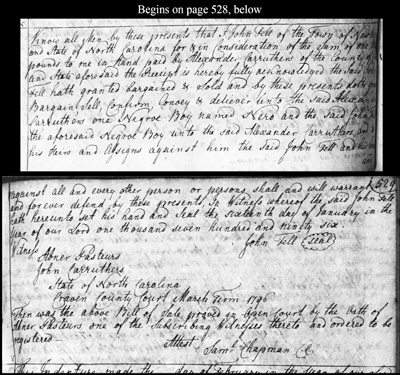 Begins on page 528, below
Know all Men by these presents that I John Tell of the Town of
and State of North Carolina for & in Consideration of the Sum of one
pounds to me in hand paid by Alexander Carruthers of the County of
and State aforesaid the Receipt is hereby fully acknowledged the Said
Tell hath granted bargained & sold and by these presents doth
Bargain Sell, Confirm Convey & deliver unto the Said
Carruthers one Negroe Boy named Nero and the Said John
the aforesaid Negroe Boy unto the Said Alexander Carruthers and
his Heirs and Assigns against him the Said John Tell and his
529
against all and every other person or persons shall and will warrant
and for ever defend by these presents. In Witness whereof the said John Tell
hath hereunto set his hand and Seal the sixteenth day of January in the
Year of our Lord one thousand seven hundred and ninty six
John Tell seal
Witness
Abner Pasteurs
John Carruthers
State of North Carolina
Craven County Court March Term 1796
Then was the above Bill of Sale proved in open Court by the Oath of
Abner Pasteurs one of the Subscribing Witnesses thereto and ordered to be
registered
Attest
Saml Chapman C
This Indenture made the day of February in the year of our Lord